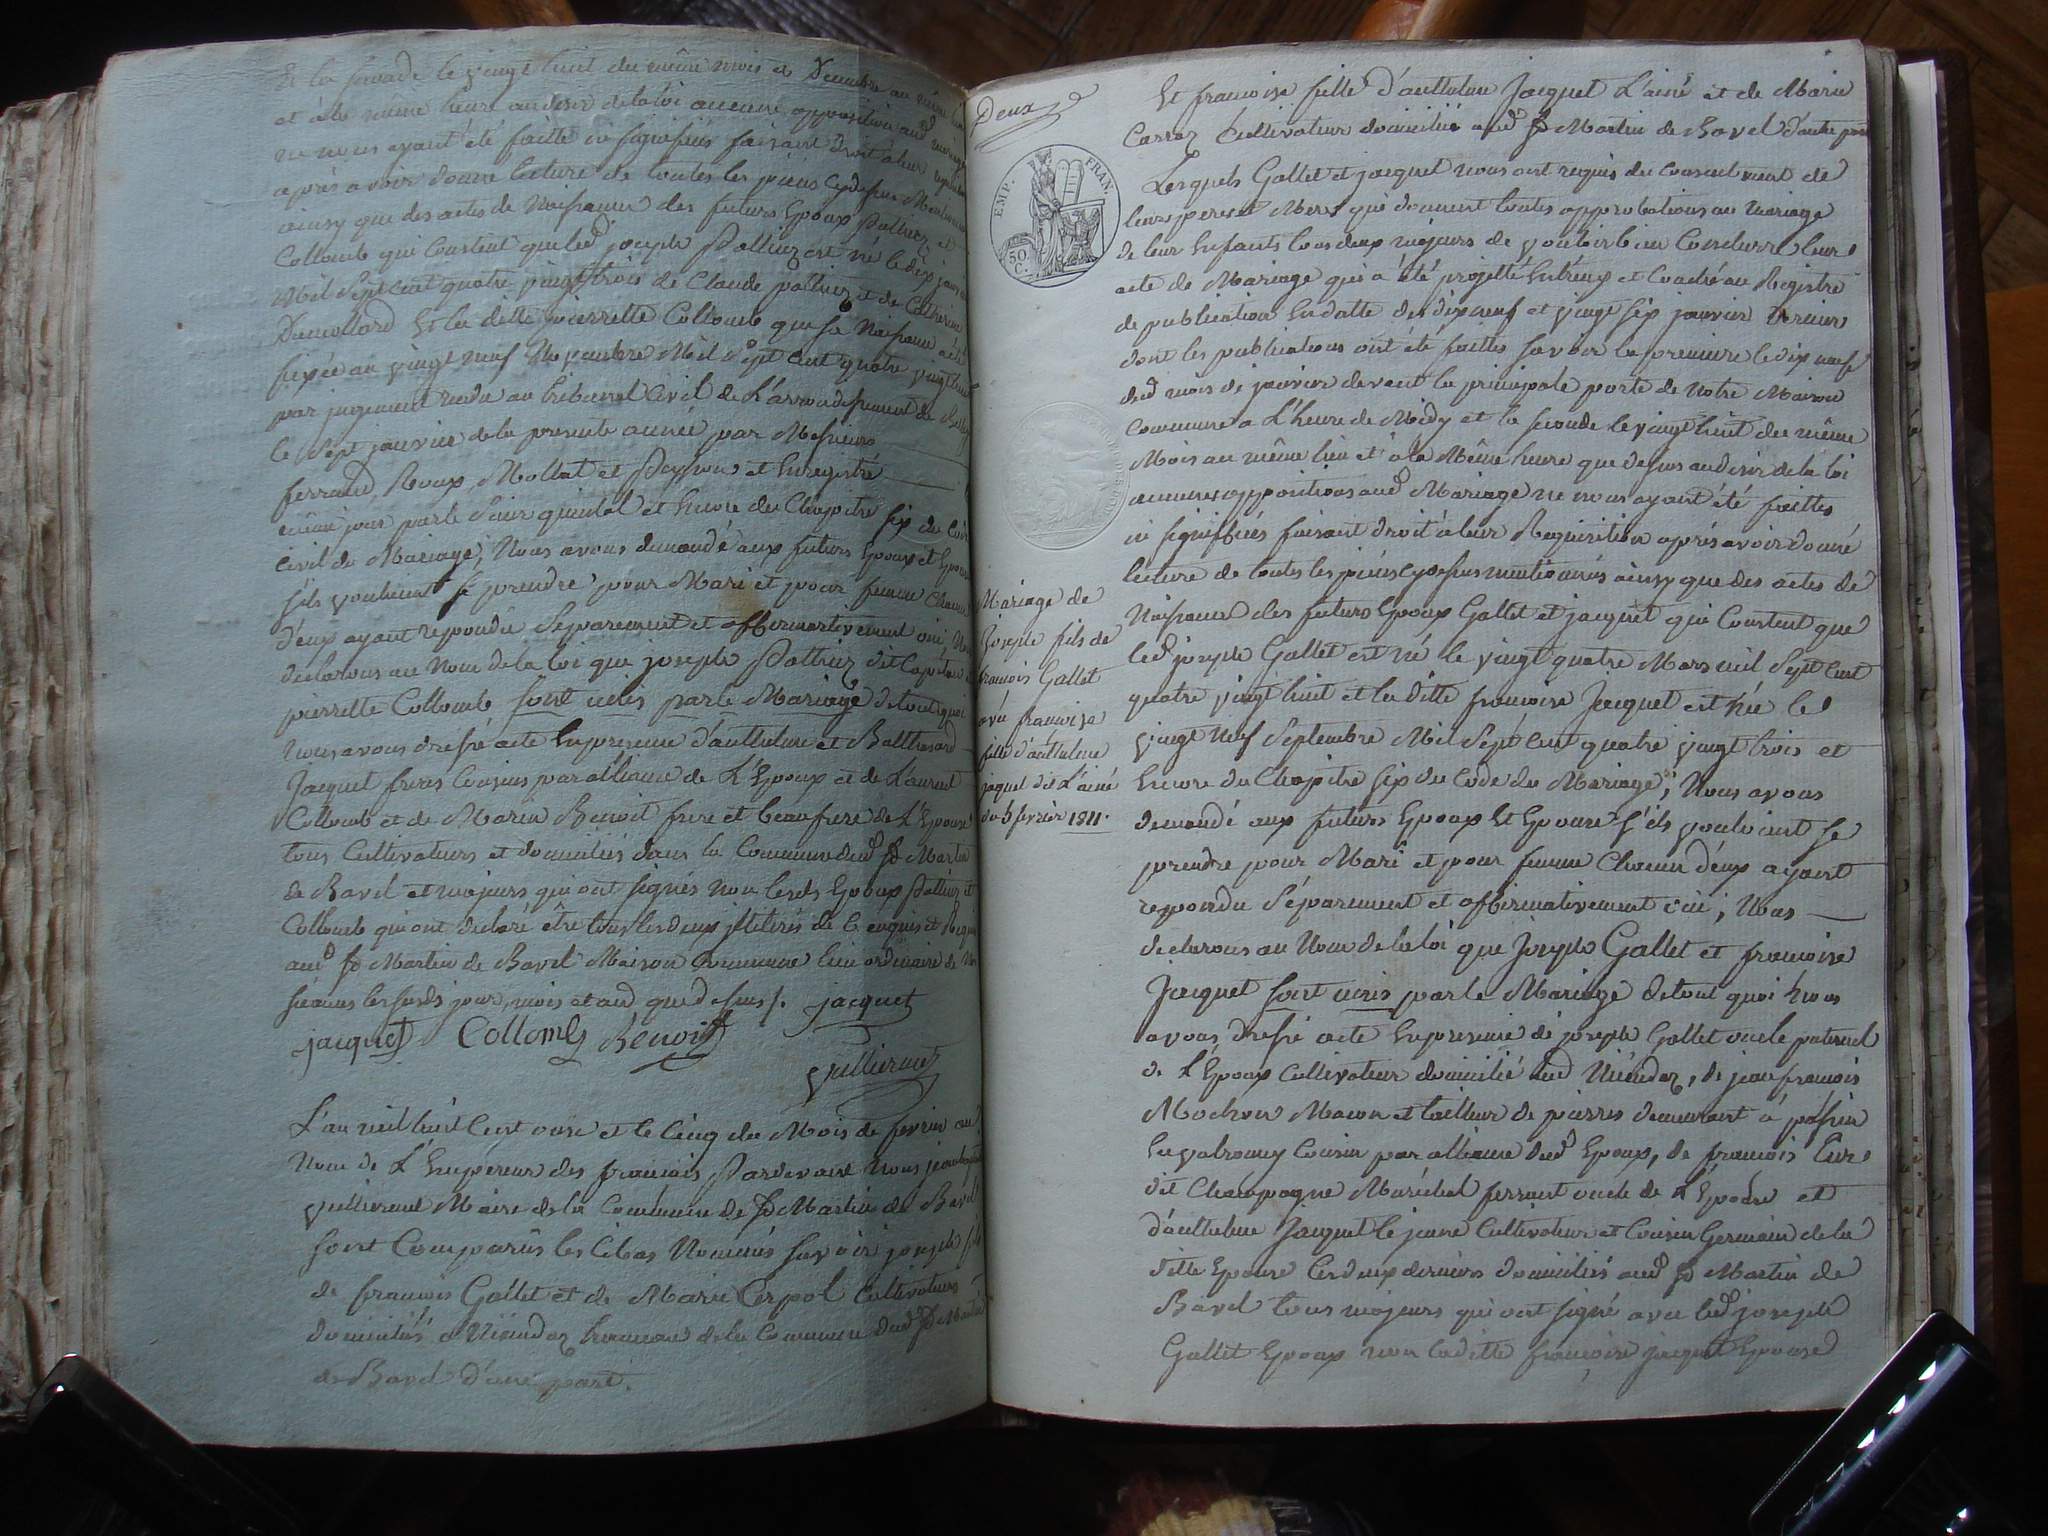 Et la seconde le vingt huit du même mois de Decembre au même lieu
et à la même heure au desir de la loi aucune opposition aud mariage
ne nous ayant été faitte ni signifiées faisant droit à leur requisition
après avoir donné lecture de toutes les pièces cydessus Mentionnées
ainsy que des actes de Naissance des futurs Epoux Pattier et
Collomb qui Constent que led joseph est né le dix janvier
Mil Sept cent quatre vingt trois de Claude et de Catherine
Et la ditte pierrette Collomb que sa Naissance a été
fixée au vingt neuf Novembre Mil Sept cent quatre vingt
par jugement rendu au tribunal Civil de L'arrondissement de Belley
le Sept janvier de la presente année par Messieurs
ferrand, Roux, Mollat et et Enregistré
même jour par le Sieur quinlat et Encore du Chapitre Six du Code
civil du Mariage, Nous avons demandé aux futurs Epoux et Epouse
s'ils vouloient se prendre pour Mari et pour femme Chacun
d'eux ayant repondu Séparement et affirmativement oui, Nous
declarons au Nom de la loi que joseph dit Capitan et
pierrette Collomb sont unis par le Mariage de tout quoi
Nous avons dressé acte En presence d'anthelme et Balthasard
Jacquet freres Cousins par alliance de L'Epoux et de Laurent
Collomb et de Marin Benoit frere et beau frere de L'Epouse
tous Cultivateurs et domiciliés dans la Commune dud St Martin
de Bavel et majeurs qui ont signés non lesds Epoux et
Collomb qui ont declaré être tous les deux illiterés de ce enquis et Requis
aud St Martin de Bavel Maison Commune lieu ordinaire de Nos
séances les susds jour, mois et and que dessus /. jacquet
jacquet Collomb Benoit
Vullierme
L'an mil huit Cent onze et le Cinq du Mois de fevrier au
Nom de L'Empereur des francais Pardevant Nous
Maire de la Commune de St Martin de Bavel
sont Comparûs les Cibas Nommés savoir joseph fils
de francois Gallet et de Marie Cerpol Cultivateurs
domiciliés a hameau de la Commune dud St Martin
de Bavel d'une part.
Deux
EMP. FRAN.
50
C.
Mariage de
Joseph fils de
francois Gallet
avec francoise
fille d'anthelme
jaquet dit L'ainé
du 5 février 1811.
Et francoise fille d'anthelme Jacquet L'ainé et de Marie
Carraz Cultivateur domicilié aud St Martin de Bavel d'autre part
Lesquels Gallet et jacquet nous ont requis du Consentement de
leurs peres et Meres qui donnent toutes approbations au mariage
de leur Enfants tous deux majeurs de vouloir bien Conclurre leur
acte de Mariage qui a été projetté Entreux et au Registre
de publication En datte des dix neuf et vingt six janvier dernier
dont les publications ont été faittes savoir la premiere le dix neuf
dud mois de janvier devant la principale porte de Notre Maison
Commune a L'heure de Midy et la seconde le vingt huit du même
Mois au même lieu et à la Même heure que dessus au desir de la loi
aucunes oppositions aud Mariage ne nous ayant été faittes
ni signiffiées faisant droit à leur Requisition après avoir donné
lecture de toutes les pièces cydessus mentionnés ainsy que des actes de
Naissance des futurs Epoux Gallet et jacquet qui Constent que
led joseph Gallet est né le vingt quatre Mars mil Sept cent
quatre vingt huit et la ditte francoise Jacquet est née le
vingt Neuf Septembre Mil Sept cent quatre vingt trois et
Encore du Chapitre Six du Code du Mariage, Nous avons
demandé aux futurs Epoux Et Epouse s'ils vouloient se
prendre pour Mari et pour femme Chacun d'eux ayant
repondu Séparement et affirmativement oui, Nous
declarons au Nom de la loi que Joseph Gallet et francoise
Jacquet sont unis par le Mariage de tout quoi Nous
avons dressé acte En presence de joseph Gallet oncle paternel
de L'Epoux Cultivateur domicilié aud de jean francois
Mochon Macon et tailleur de pierres demeurant à passin
En valromey Cousin par alliance dud Epoux, de francois
dit Champagne Maréchal ferrant oncle de L'Epouse et
d'anthelme Jacquet le jeune Cultivateur et Cousin Germain de la
ditte Epouse Ces deux derniers domiciliés aud St Martin de
Bavel tous majeurs qui ont signé avec led joseph
Gallet Epoux non la ditte francoise jacquet Epouse